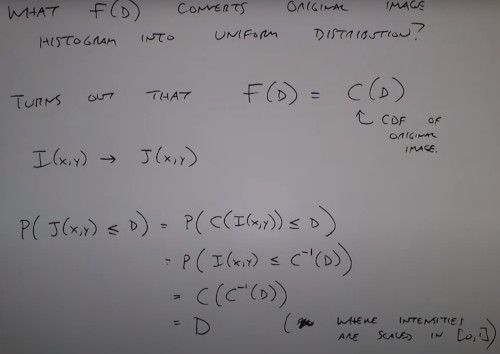 WHAT F(D) CONVERTS ORIGINAL IMAGE
HISTOGRAM INTO UNIFORM DISTRIBUTION?
TURNS OUT THAT F(D) = C(D)
↑ CDF OF
ORIGINAL
IMAGE.
I(x,y) → J(x,y)
P( J(x,y) ≤ D) = P( C(I(x,y)) ≤ D)
= P( I(x,y) ≤ C⁻¹(D))
= C(C⁻¹(D))
= D ( WHERE INTENSITIES
ARE SCALED IN [0,1])